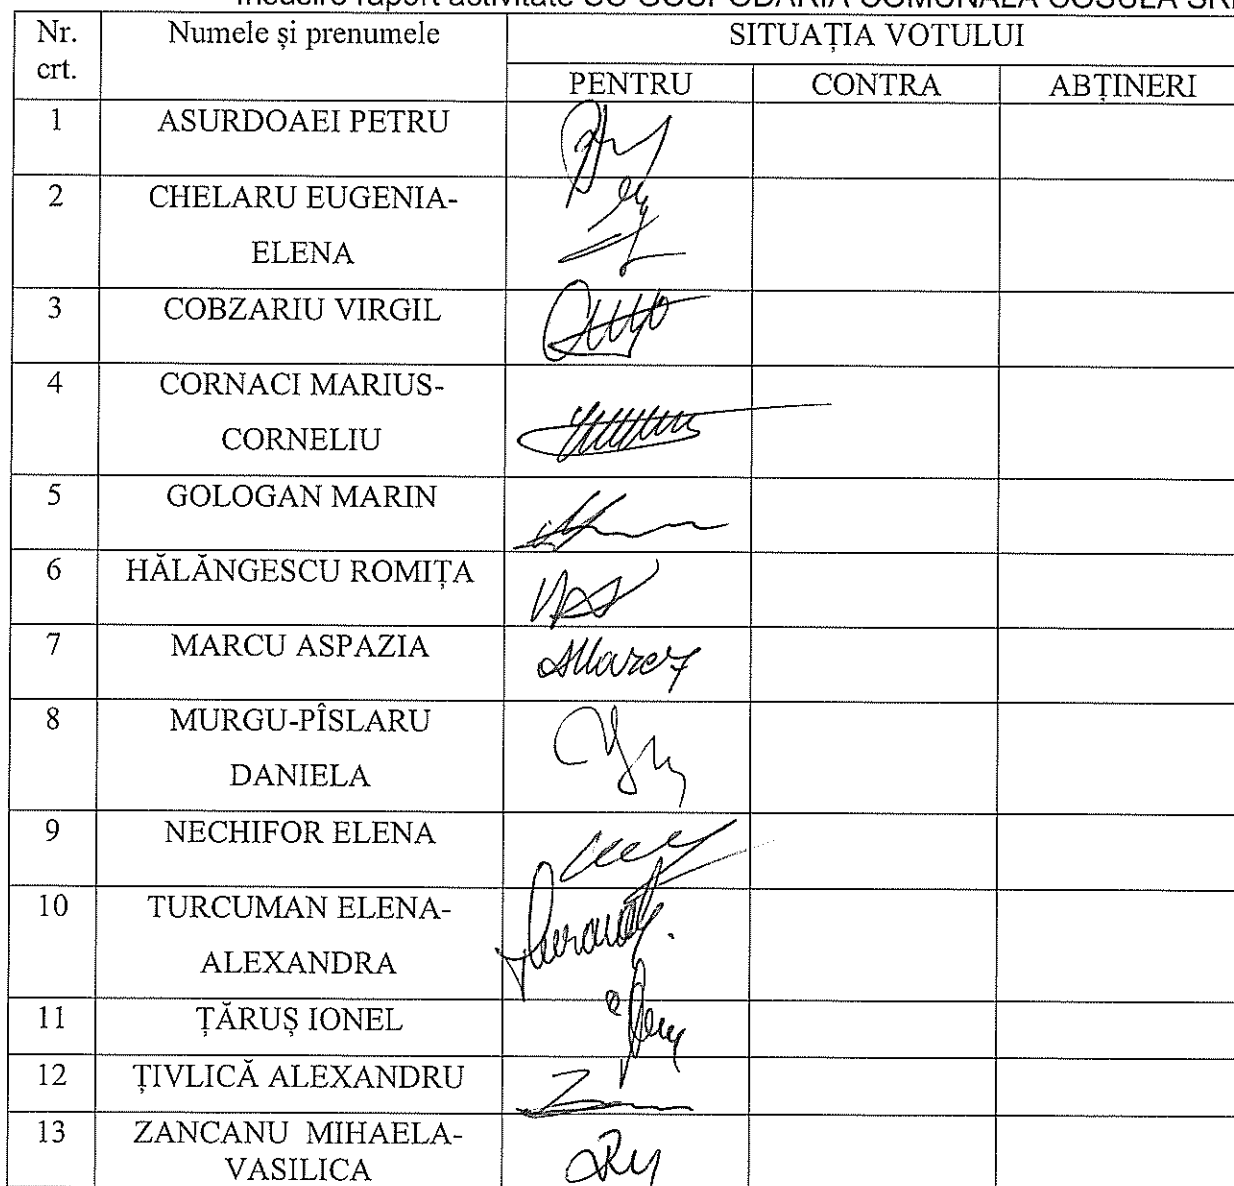 raport activitate CU GOSPODARIA COMUNALA COSULA SRL
Nr. crt. Numele și prenumele SITUAȚIA VOTULUI
PENTRU CONTRA ABȚINERI
1 ASURDOAEI PETRU
2 CHELARU EUGENIA-
ELENA
3 COBZARIU VIRGIL
4 CORNACI MARIUS-
CORNELIU
5 GOLOGAN MARIN
6 HĂLĂNGESCU ROMIȚA
7 MARCU ASPAZIA
8 MURGU-PÎSLARU
DANIELA
9 NECHIFOR ELENA
10 TURCUMAN ELENA-
ALEXANDRA
11 ȚĂRUȘ IONEL
12 ȚIVLICĂ ALEXANDRU
13 ZANCANU MIHAELA-
VASILICA